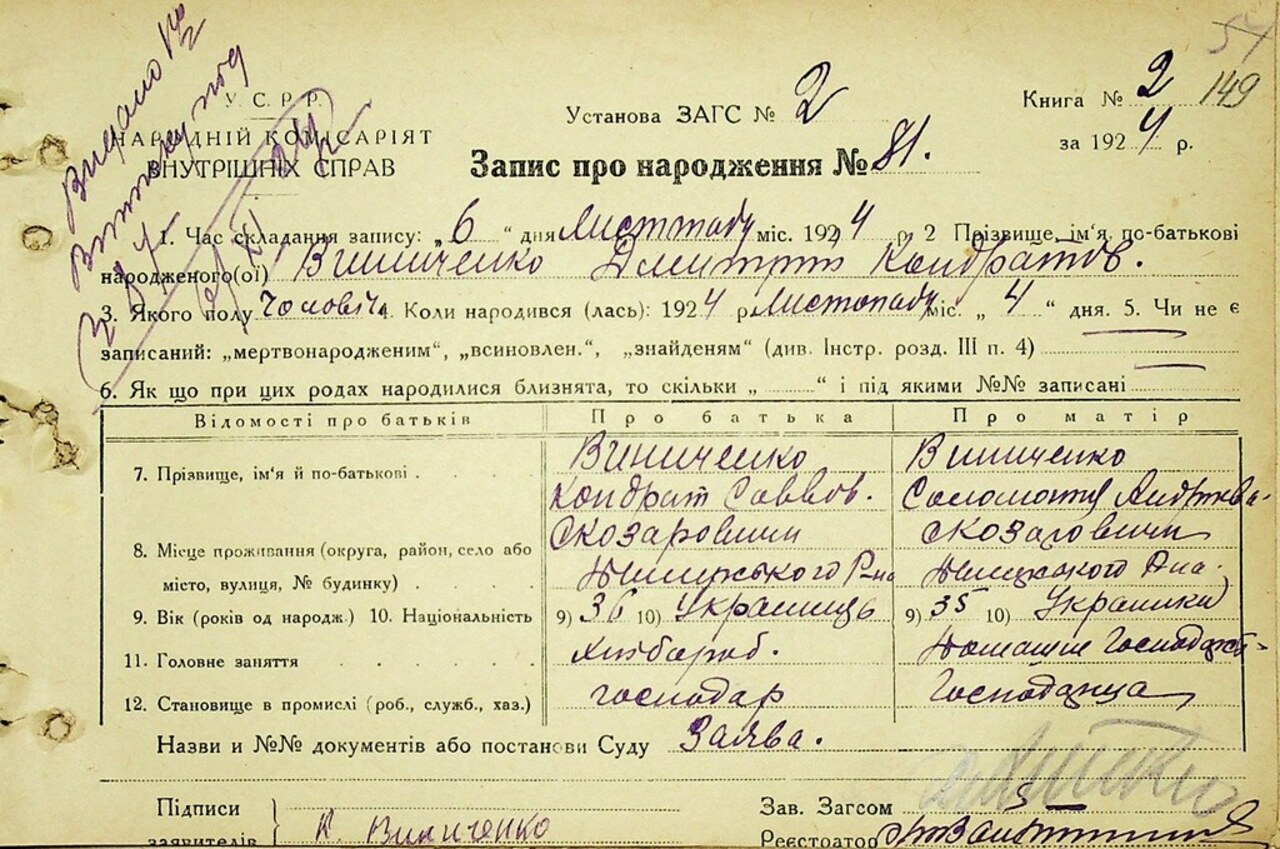 54
149
Видано
У. С. Р. Р.
НАРОДНІЙ КОМІСАРІЯТ
ВНУТРІШНІХ СПРАВ
Установа ЗАГС № 2
Книга № 2
за 1924 р.
Запис про народження № 81.
1. Час складання запису: „6" дня Листопаду міс. 1924 р. 2 Прізвище, ім'я, по-батькові
народженого(ої) Виниченко Дмитрій Кондратов.
3. Якого полу Чоловіч 4. Коли народився (лась): 1924 р. Листопаду міс. „4" дня. 5. Чи не є
записаний: „мертвонародженим", „всиновлен.", „знайденям" (див. Інстр. розд. III п. 4)
6. Як що при цих родах народилися близнята, то скільки „ " і під якими №№ записані
Відомості про батьків Про батька Про матір
7. Прізвище, ім'я й по-батькові Виниченко Кондрат Саввов. Виниченко Соломонія
8. Місце проживання (округа, район, село або місто, вулиця, № будинку) Скозаровини Р-на Скозаровини
9. Вік (років од народж.) 10. Національність 9) 36 10) Украинець 9) 35 10) Украинка
11. Головне заняття Хлібороб.
12. Становище в промислі (роб., служб., хаз.) господар
Назви и №№ документів або постанови Суду Заява.
Підписи
заявителів К. Виниченко
Зав. Загсом
Реєстратор